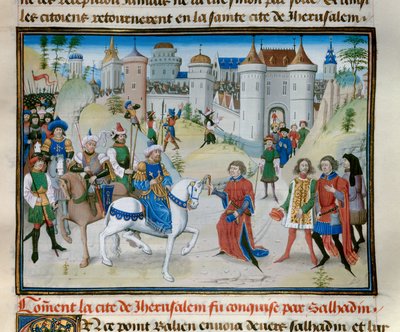 les citoiens retournerent en la sainte cite de Jherusalem
Comēt la cite de Jherusalem fu conquise par Salhadin
En ce point Balien envoia devers salhadin et luy